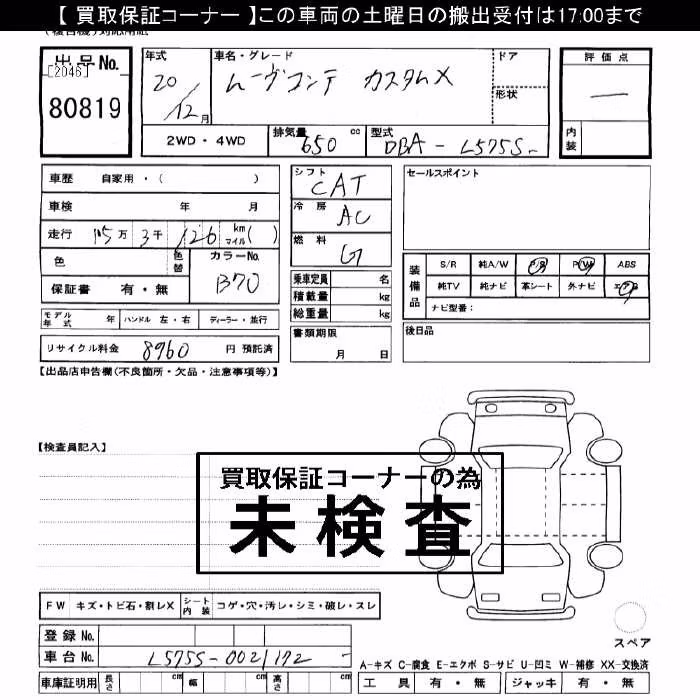 【 買取保証コーナー 】この車両の土曜日の搬出受付は17:00まで
出品No.
[2046]
80819
年式
20/12月
車名・グレード
ムーヴコンテ カスタムX
ドア
形状
評価点
—
内装
2WD・4WD
排気量 650 cc
型式 DBA-L575S-
車歴 自家用・( )
車検 年 月
走行 15万 3千 126 km マイル( )
色
色替
カラーNo. B70
保証書 有・無
モデル年式 年 ハンドル 左・右 ディーラー・並行
リサイクル料金 8960 円 預託済
シフト CAT
冷房 AC
燃料 G
乗車定員 名
積載量 kg
総重量 kg
書類期限
月 日
セールスポイント
装備品
S/R 純A/W P/S P/W ABS
純TV 純ナビ 革シート 外ナビ エアB
ナビ型番：
後日品
【出品店申告欄(不良箇所・欠品・注意事項等)】
【検査員記入】
買取保証コーナーの為
未検査
FW キズ・トビ石・割レX シート内装 コゲ・穴・汚レ・シミ・破レ・スレ
登録No.
車台No. L575S-0021172
車庫証明用 長さ cm 幅 cm 高さ cm
スペア
A-キズ C-腐食 E-エクボ S-サビ U-凹ミ W-補修 XX-交換済
工具 有・無 ジャッキ 有・無